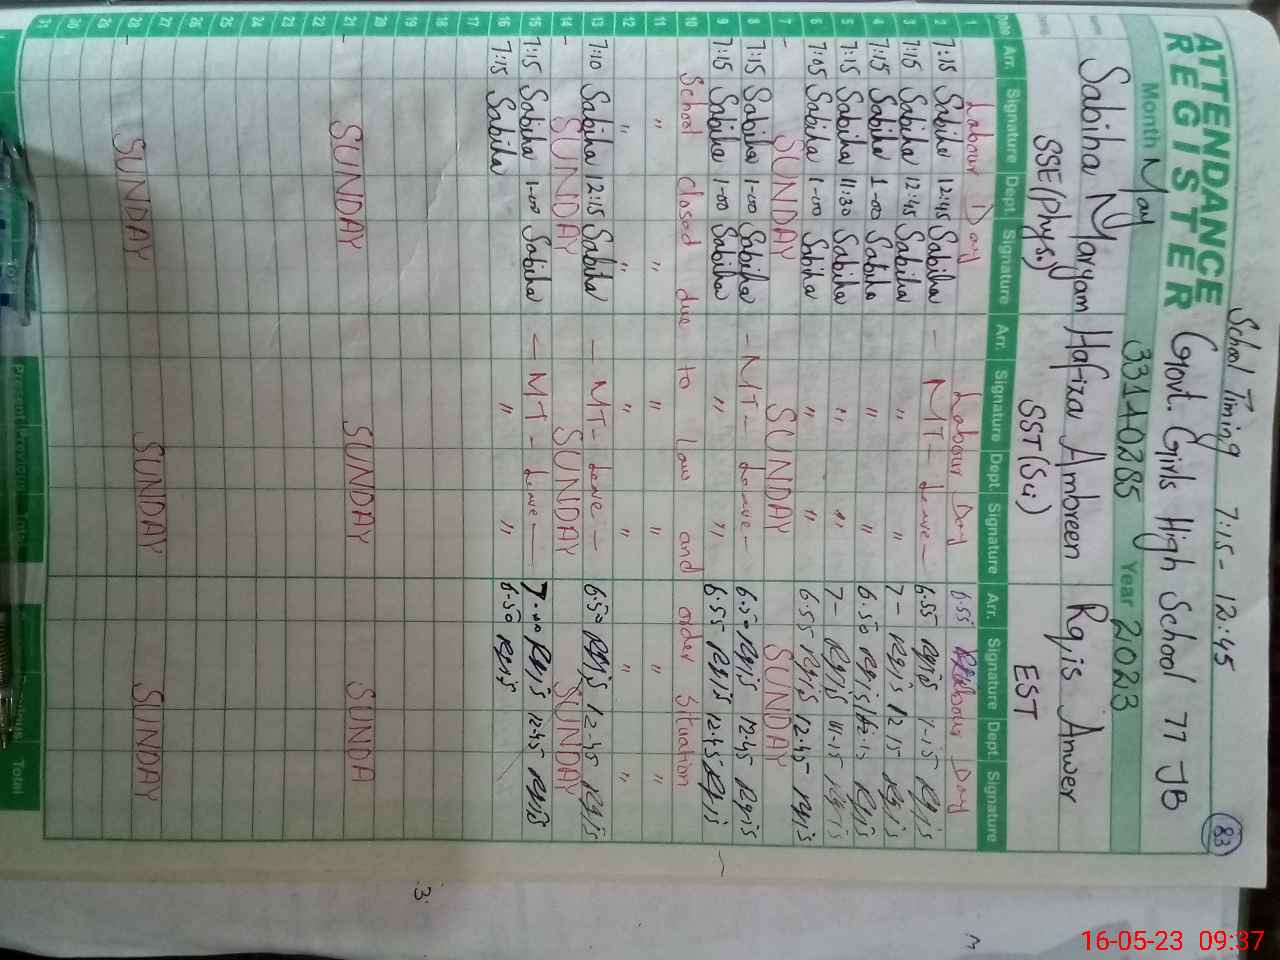 School Timing 7:15 - 12:45
ATTENDANCE REGISTER Govt. Girls High School 77 JB 83
Month May 33110285 Year 2023
Name Sabiha Maryam Hafiza Ambreen Rqis Anwer
SSE(phys.) SST(Sci) EST
Date Arr. Signature Dept. Signature Arr. Signature Dept. Signature Arr. Signature Dept. Signature
1 Labour Day Labour Day 6:55 Labour Day
2 7:15 Sabiha 12:45 Sabiha - MT - Leave - 6:55 Rqis 1-15 Rqis
3 7:15 Sabiha 12:45 Sabiha " " 7 - Rqis 12 15 Rqis
4 7:15 Sabiha 1-00 Sabiha " " 6.50 Rqis Rqis
5 7:15 Sabiha 11:30 Sabiha " " 7 - Rqis 11-15 Rqis
6 7:05 Sabiha 1-00 Sabiha " " 6.55 Rqis 12.45 Rqis
7 - SUNDAY SUNDAY SUNDAY
8 7:15 Sabiha 1-00 Sabiha - MT - Leave - 6.50 Rqis 12.45 Rqis
9 7:15 Sabiha 1-00 Sabiha " " 6.55 Rqis 12.45 Rqis
10 School closed due to law and order Situation
11 " " " " " "
12 " " " " " "
13 7:10 Sabiha 12:15 Sabiha - MT - Leave - 6.50 Rqis 12-45 Rqis
14 - SUNDAY SUNDAY SUNDAY
15 7:15 Sabiha 1-00 Sabiha - MT - Leave - 7.00 Rqis 12.45 Rqis
16 7:15 Sabiha " " 6.50 Rqis
17
18
19
20
21 - SUNDAY SUNDAY SUNDA
22
23
24
25
26
27
28 - SUNDAY SUNDAY SUNDAY
29
30
31
Present Previous Total Previous Total
3
16-05-23 09:37